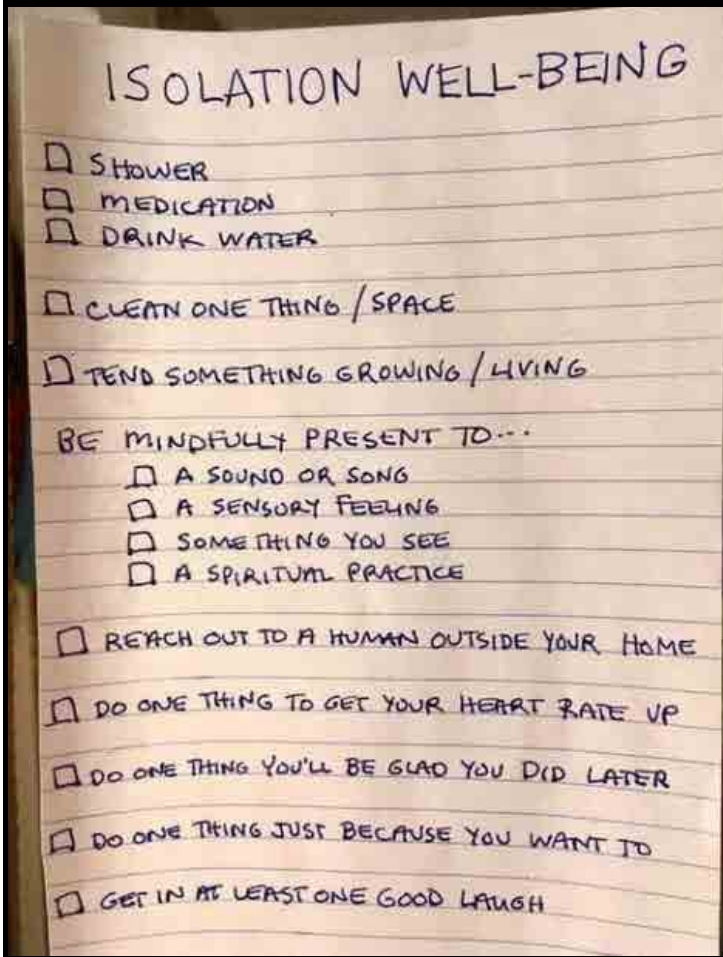 ISOLATION WELL-BEING
SHOWER
MEDICATION
DRINK WATER
CLEAN ONE THING / SPACE
TEND SOMETHING GROWING / LIVING
BE MINDFULLY PRESENT TO...
A SOUND OR SONG
A SENSORY FEELING
SOMETHING YOU SEE
A SPIRITUAL PRACTICE
REACH OUT TO A HUMAN OUTSIDE YOUR HOME
DO ONE THING TO GET YOUR HEART RATE UP
DO ONE THING YOU'LL BE GLAD YOU DID LATER
DO ONE THING JUST BECAUSE YOU WANT TO
GET IN AT LEAST ONE GOOD LAUGH